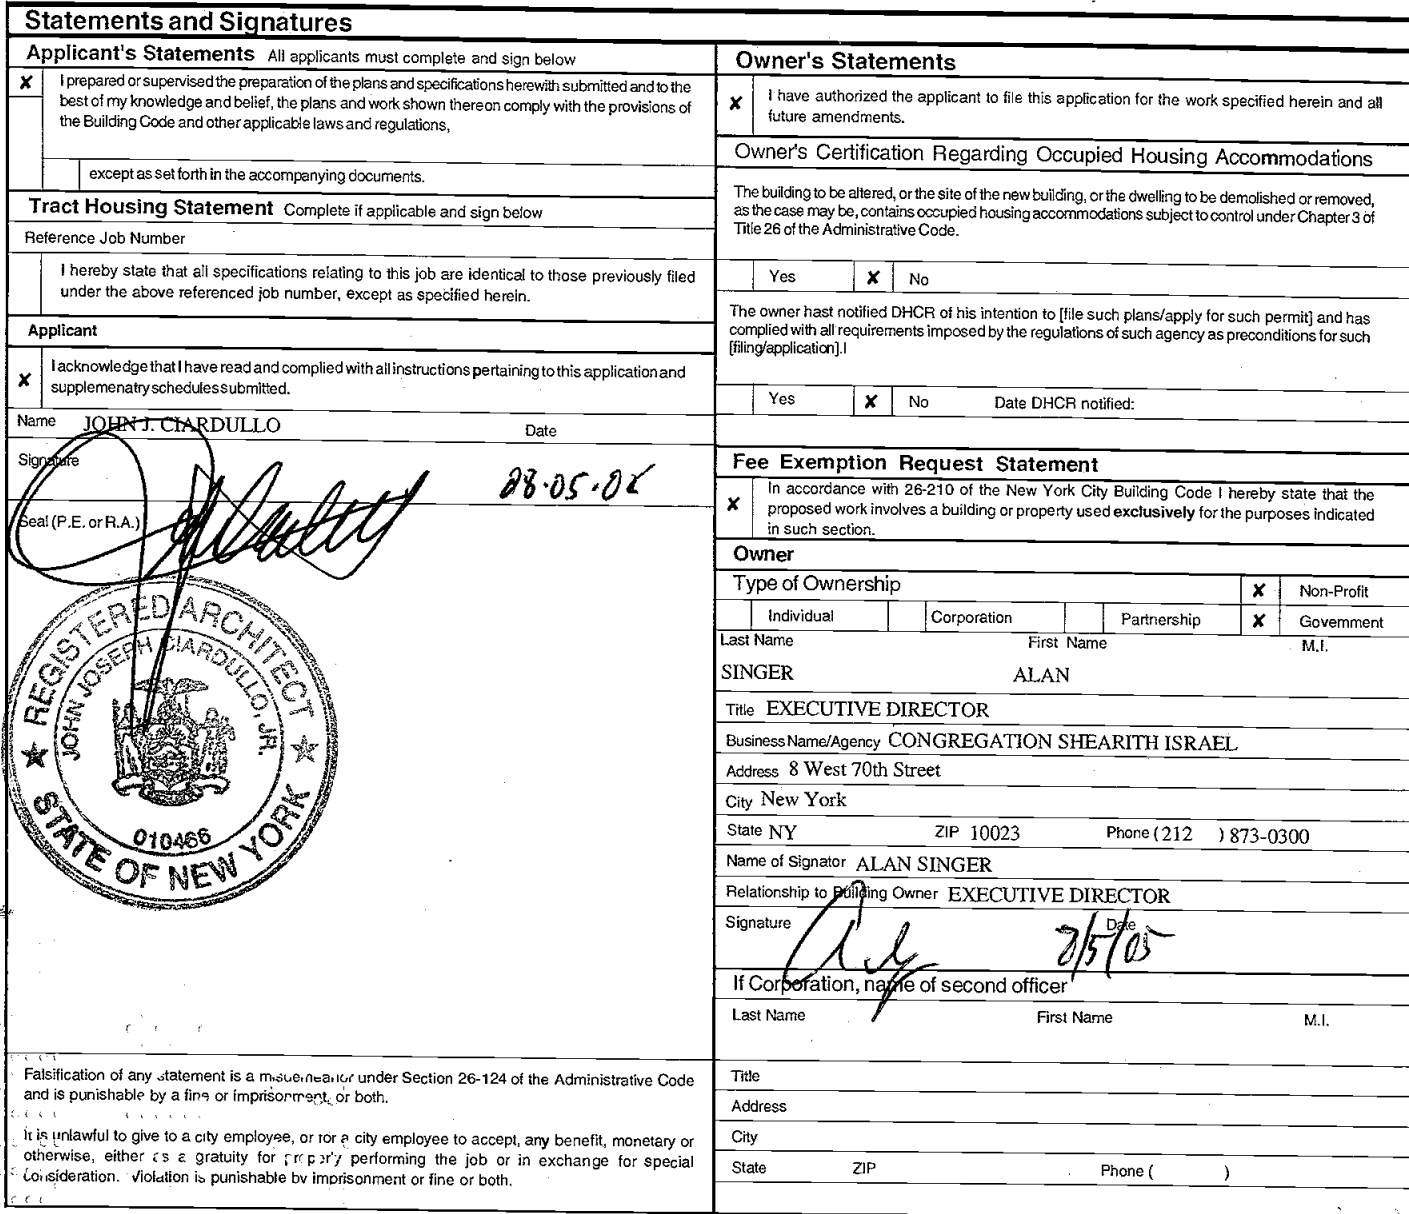 Statements and Signatures
Applicant's Statements All applicants must complete and sign below
✘ I prepared or supervised the preparation of the plans and specifications herewith submitted and to the
best of my knowledge and belief, the plans and work shown thereon comply with the provisions of
the Building Code and other applicable laws and regulations,
except as set forth in the accompanying documents.
Tract Housing Statement Complete if applicable and sign below
Reference Job Number
I hereby state that all specifications relating to this job are identical to those previously filed
under the above referenced job number, except as specified herein.
Applicant
✘ I acknowledge that I have read and complied with all instructions pertaining to this application and
supplemenatry schedules submitted.
Name JOHN J. CIARDULLO Date
Signature
Seal (P.E. or R.A.)
REGISTERED ARCHITECT
JOHN JOSEPH CIARDULLO, JR.
010466
STATE OF NEW YORK
Falsification of any statement is a misdemeanor under Section 26-124 of the Administrative Code
and is punishable by a fine or imprisonment, or both.
It is unlawful to give to a city employee, or for a city employee to accept, any benefit, monetary or
otherwise, either as a gratuity for properly performing the job or in exchange for special
consideration. Violation is punishable by imprisonment or fine or both.
Owner's Statements
✘ I have authorized the applicant to file this application for the work specified herein and all
future amendments.
Owner's Certification Regarding Occupied Housing Accommodations
The building to be altered, or the site of the new building, or the dwelling to be demolished or removed,
as the case may be, contains occupied housing accommodations subject to control under Chapter 3 of
Title 26 of the Administrative Code.
Yes ✘ No
The owner hast notified DHCR of his intention to [file such plans/apply for such permit] and has
complied with all requirements imposed by the regulations of such agency as preconditions for such
[filing/application].I
Yes ✘ No Date DHCR notified:
Fee Exemption Request Statement
✘ In accordance with 26-210 of the New York City Building Code I hereby state that the
proposed work involves a building or property used exclusively for the purposes indicated
in such section.
Owner
Type of Ownership ✘ Non-Profit
Individual Corporation Partnership ✘ Government
Last Name First Name M.I.
SINGER ALAN
Title EXECUTIVE DIRECTOR
Business Name/Agency CONGREGATION SHEARITH ISRAEL
Address 8 West 70th Street
City New York
State NY ZIP 10023 Phone (212 ) 873-0300
Name of Signator ALAN SINGER
Relationship to Building Owner EXECUTIVE DIRECTOR
Signature Date
8/5/05
If Corporation, name of second officer
Last Name First Name M.I.
Title
Address
City
State ZIP Phone ( )